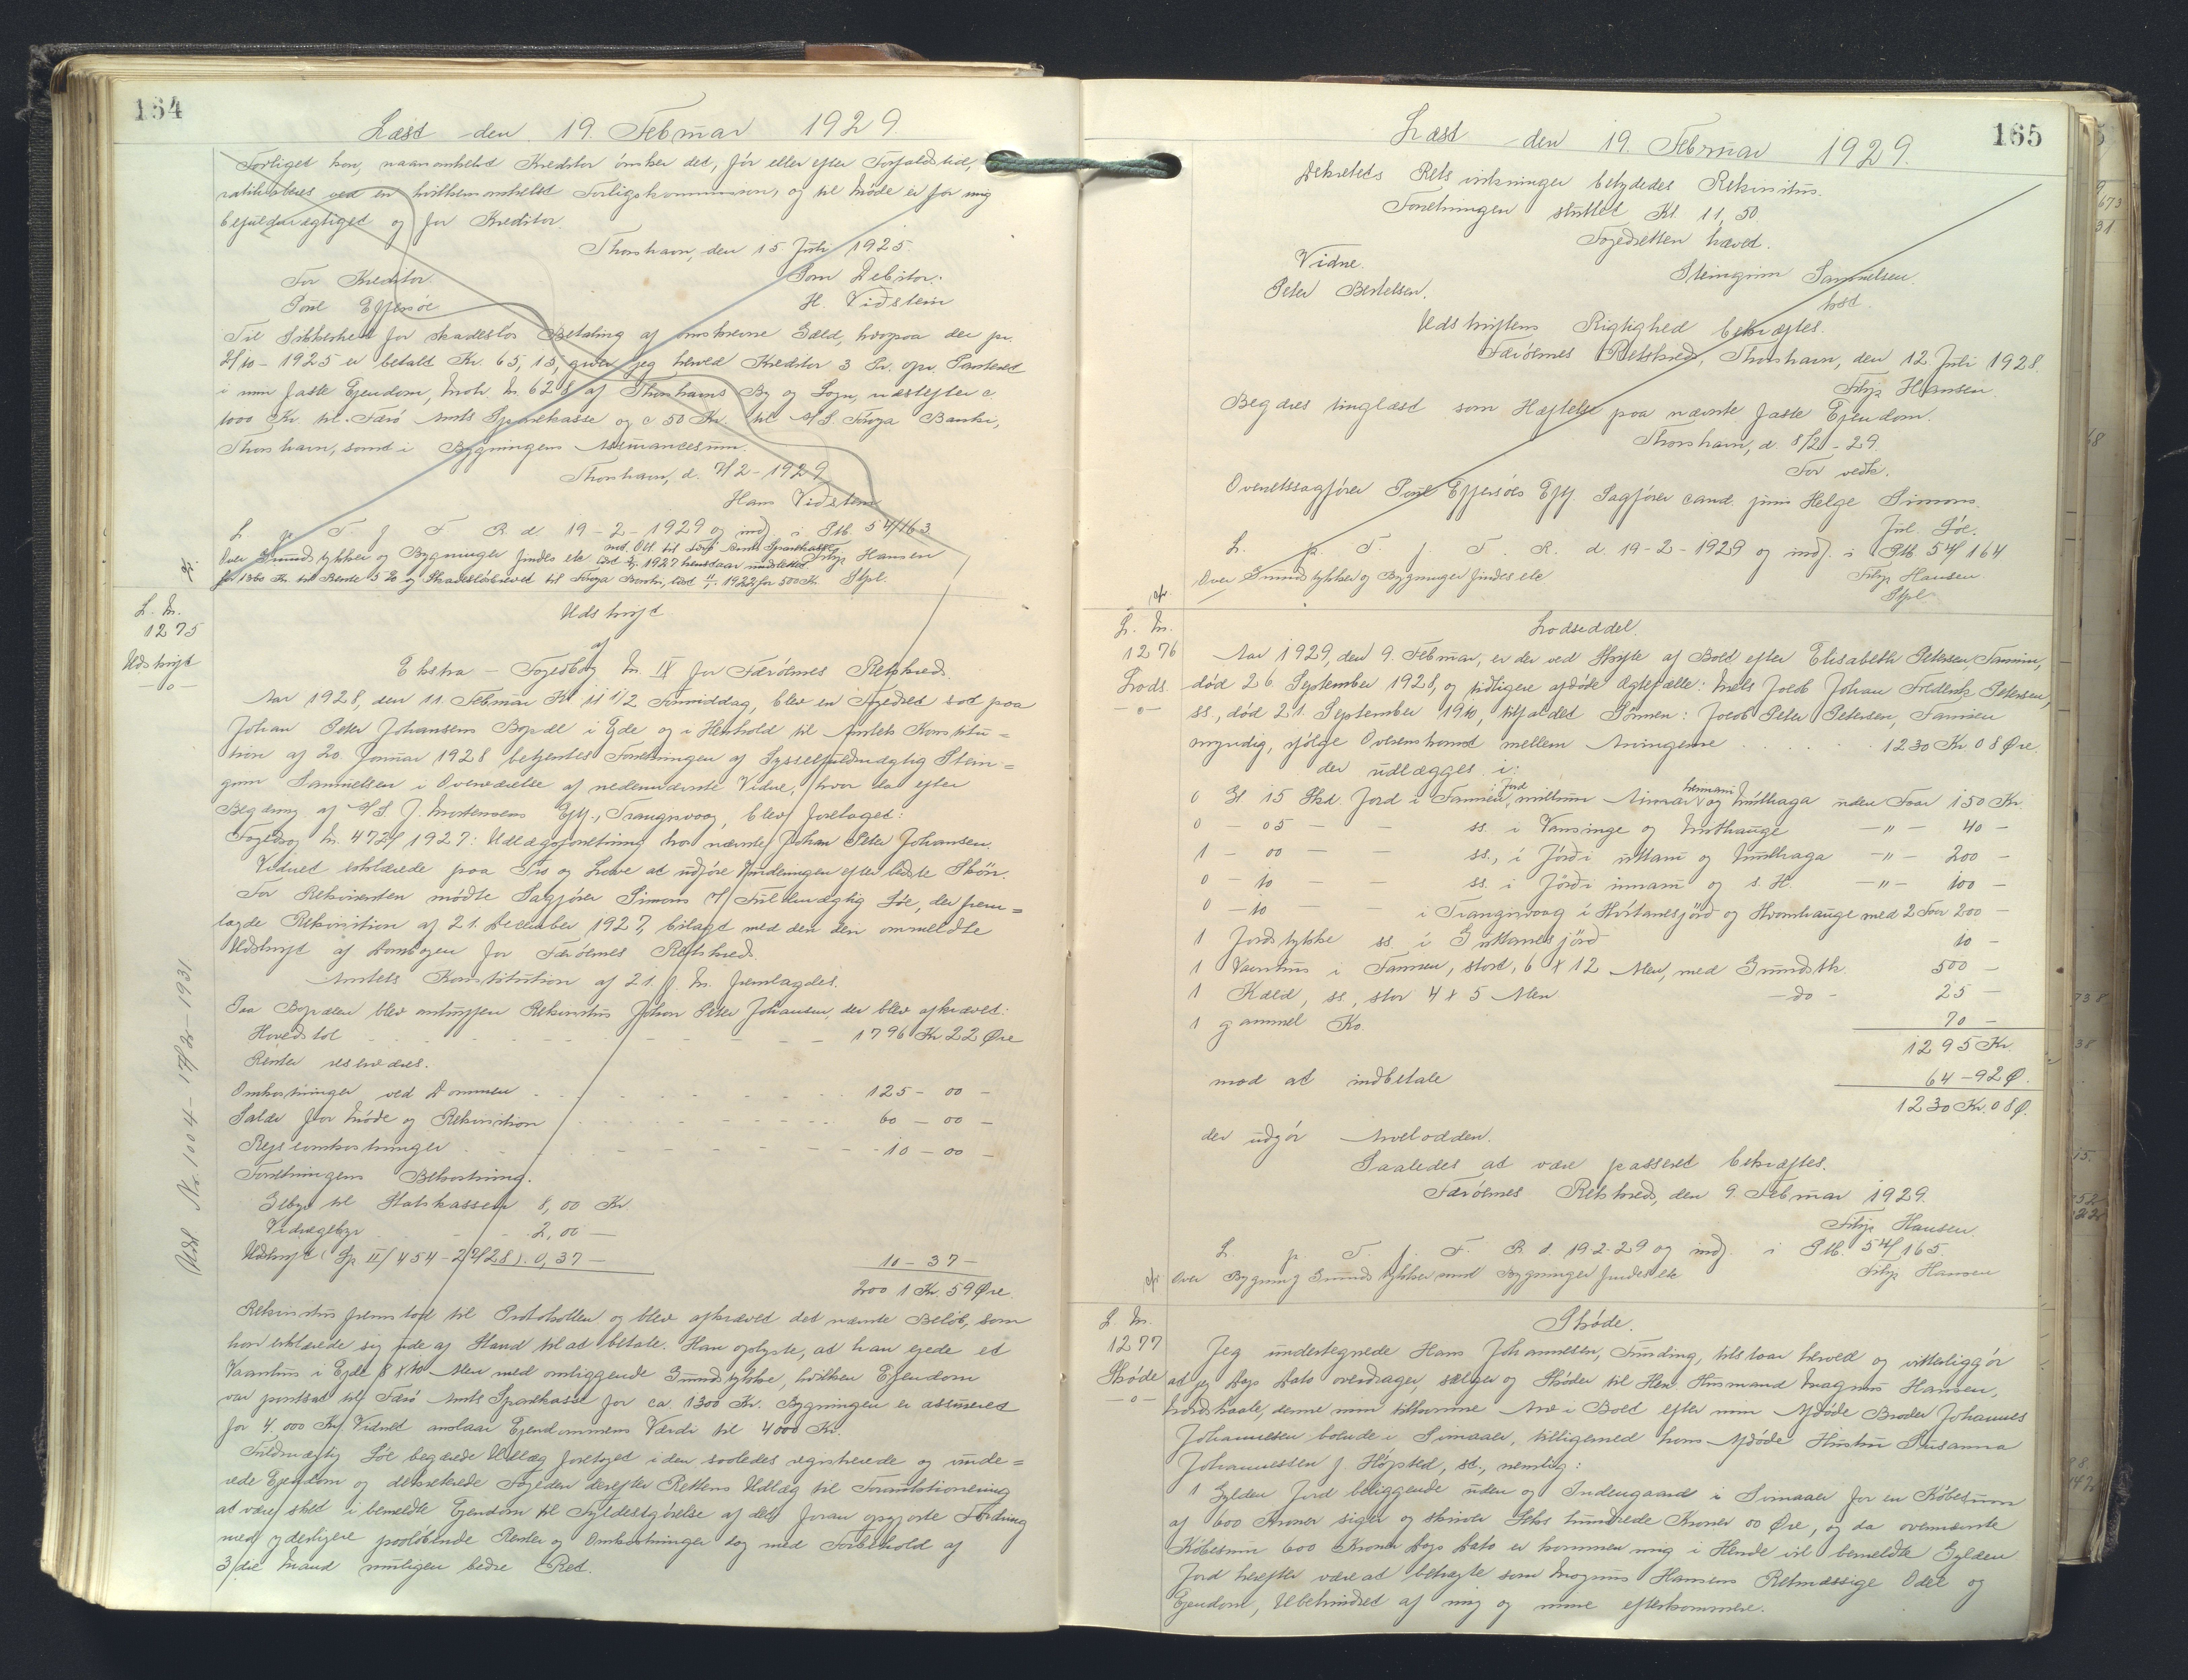 164
Læst den 19. Februar 1929.
Forliget kan, naarsomhelst Kreditor ønsker det, før eller efter Forfaldstid,
ratihaberes ved en hvilkensomhelst Forligskommission, og til Møde er for mig
befuldmægtiget og for Kreditor.
Thorshavn, den 15 Juli 1925.
For Kreditor. Som Debitor:
Poul Effersøe H. Vidstein
Til Sikkerhed for skadesløs Betaling af omskrevne Gæld, hvorpaa der pr.
2/10 - 1925 er betalt Kr. 65,15, giver jeg herved Kreditor 3 Pr. opr. Panteret
i min faste Ejendom, Matr. № 628 af Thorshavns By og Sogn, næstefter c
1000 Kr. til Færø Amts Sparekasse og c 50 Kr. til A/S. Føroya Banki,
Thorshavn, samt i Bygningens Assurancesum.
Thorshavn, d. 7/2 - 1929
Hans Vidstein
L. p. T. f. F. R. d. 19-2-1929 og indf. i Ptb. 54/163.
Over Grundstykker og Bygninger findes ete med. Obl. til Færø Amts Sparekasse Filip Hansen
for 1360 Kr. til Rente 5 % og Skadesløsbrev til Føroya Banki, 1922 for 500 Kr. Stpl.
L. №.
1275
Udskrift
—o—
Udskrift
af
Ekstra - Fogedbog № IX for Færøernes Retskreds.
Aar 1928, den 11. Februar Kl. 11 1/2 Formiddag, blev en Fogedret sat paa
Johan Peter Johansens Bopæl i Ejde og i Henhold til Amtets Konstitu=
tion af 20. Januar 1928 betjentes Forretningen af Sysselfuldmægtig Stein=
grim Samuelsen i Overværelse af nedennævnte Vidne, hvor da efter
Begæring af A/S. J. Mortensens Eftf., Trangisvaag, blev foretaget:
Fogedsag № 472/1927: Udlægsforretning hos nævnte Johan Peter Johansen.
Vidnet erklærede paa Tro og Love at udføre Vurderingen efter bedste Skøn.
For Rekvirenten mødte Sagfører Simons v/ Fuldmægtig Joe, der frem=
lagde Rekvisition af 21. December 1927, bilagt med den den ommeldte
Udskrift af Dombogen for Færøernes Retskreds.
Amtets Konstitution af 21. f. M. fremlagdes.
Paa Bopælen blev antruffen Rekvisitus Johan Peter Johansen, der blev afkrævet:
Hovedstol 1796 Kr. 22 Øre
Renter reserveres.
Omkostninger ved Dommen 125 - 00 -
Salær for Møde og Rekvisition 60 - 00 -
Rejseomkostninger 10 - 00 -
Forretningens Bekostning.
Gebyr til Statskassen 8,00 Kr.
Vidnegebyr 2,00 -
Udskrift (Sp. II/454 - 2/2 28) 0,37 - 10 - 37 -
2001 Kr. 59 Øre.
Rekvisitus fremstod til Protokollen og blev afkrævet det nævnte Beløb, som
han erklærede sig ude af Stand til at betale. Han oplyste, at han ejede et
Vaanhus i Ejde 8 x 10 Alen med omliggende Grundstykke, hvilken Ejendom
var pantsat til Færø Amts Sparekasse for ca. 1300 Kr. Bygningen er assureret
for 4.000 Kr. Vidnet anslaar Ejendommens Værdi til 4000 Kr.
Fuldmægtig Joe begærede Udlæg foretaget i den saaledes registrerede og vurde=
rede Ejendom og dekreterede Fogeden derefter Rettens Udlæg til Foranstationering
at være sket i bemeldte Ejendom til Fyldestgørelse af det foran opgjorte Fordring
med yderligere paaløbende Renter og Omkostninger dog med Forbehold af
3/die Mand muligen bedre Ret.
Udsl. Nr. 1004 - 17/20 - 1931
165
Læst den 19. Februar 1929.
Dekretets Retsvirkninger betydedes Rekvisitus.
Forretningen sluttet Kl. 11,50
Fogedretten hævet.
Vidne. Steingrim Samuelsen.
Peter Bertelsen. kst.
Udskriftens Rigtighed bekræftes.
Færøernes Retskreds, Thorshavn, den 12. Juli 1928.
Filip Hansen
Begæres tinglæst som Hæftelse paa nævnte faste Ejendom.
Thorshavn, d. 8/2 - 29.
For vedk.
Overretssagfører Poul Effersøes Eftf. Sagfører cand. juris Helge Simons.
Jul. Joe.
L. p. T. f. F. R. d. 19-2-1929 og indf. i Ptb. 54/164
Over Grundstykker og Bygninger findes ete Filip Hansen
Stpl.
L. №.
1276
Lods.
—o—
Lodseddel.
Aar 1929, den 9. Februar, er der ved Skifte af Boet efter Elisabeth Petersen, Famien,
død 26. September 1928, og tidligere afdøde Ægtefælle: Niels Jacob Johan Frederik Petersen,
ss., død 21. September 1910, tilfaldet Sønnen: Jacob Peter Petersen, Famien
myndig, ifølge Overenskomst mellem Arvingerne 1230 Kr. 08 Øre.
der udlægges i:
0 Gl. 15 Skd. Jord i Famien, millum Ainar og Múlhaga uden Foar 150 Kr.
0 - 05 - - ss. i Vansinge og Nushauge —"— 40 -
1 - 00 - - ss., i Jørdi uttari og Múlhaga —"— 200 -
0 - 10 - - ss. i Jørdi innari og s. H. —"— 100 -
0 - 10 - - i Trangisvaag i Hórtanesjørd og Hvomhauge med 2 Foar 200 -
1 Jordstykke ss. i Guttanesjørd 10 -
1 Vaanhus i Famien, stort, 6 x 12 Alen, med Grundstk. 500 -
1 Kæld, ss., stor 4 x 5 Alen —do— 25 -
1 gammel Ko 70 -
1295 Kr.
mod at indbetale 64 - 92 Ø.
1230 Kr. 08 Ø.
der udgør Arvelodden.
Saaledes at være passeret bekræftes.
Færøernes Retskreds, den 9. Februar 1929.
Filip Hansen.
L. p. T. f. F. R. d. 19-2-29 og indf. i Ptb. 54/165.
Over Bygning Grundstykker med Bygninger findes ete Filip Hansen
L. №.
1277
Skøde
—o—
Skøde.
Jeg undertegnede Hans Johannesen, Funding, tilstaar herved og vitterliggør
at jeg Dags Dato overdrager, sælger og Skøder til Herr Husmand Magnus Hansen,
Nordskaale, denne min tilkomne Arv i Boet efter min Afdøde Broder Johannes
Johannessen boende i Svinaaer, tilligemed hans Afdøde Hustru Susanna
Johannessen f. Høpsted, st., nemlig:
1 Gylden Jord beliggende uden og Indengaard i Svinaaer for en Købesum
af 600 Kroner siger og skriver Seks hundrede Kroner 00 Øre, og da ovennævnte
Købesum 600 Kroner Dags Dato er kommen mig i Hende vil bemeldte Gylden
Jord herefter være at betragte som Magnus Hansens Retmæssige Odel og
Ejendom, Ubehindret af mig og mine efterkommere.